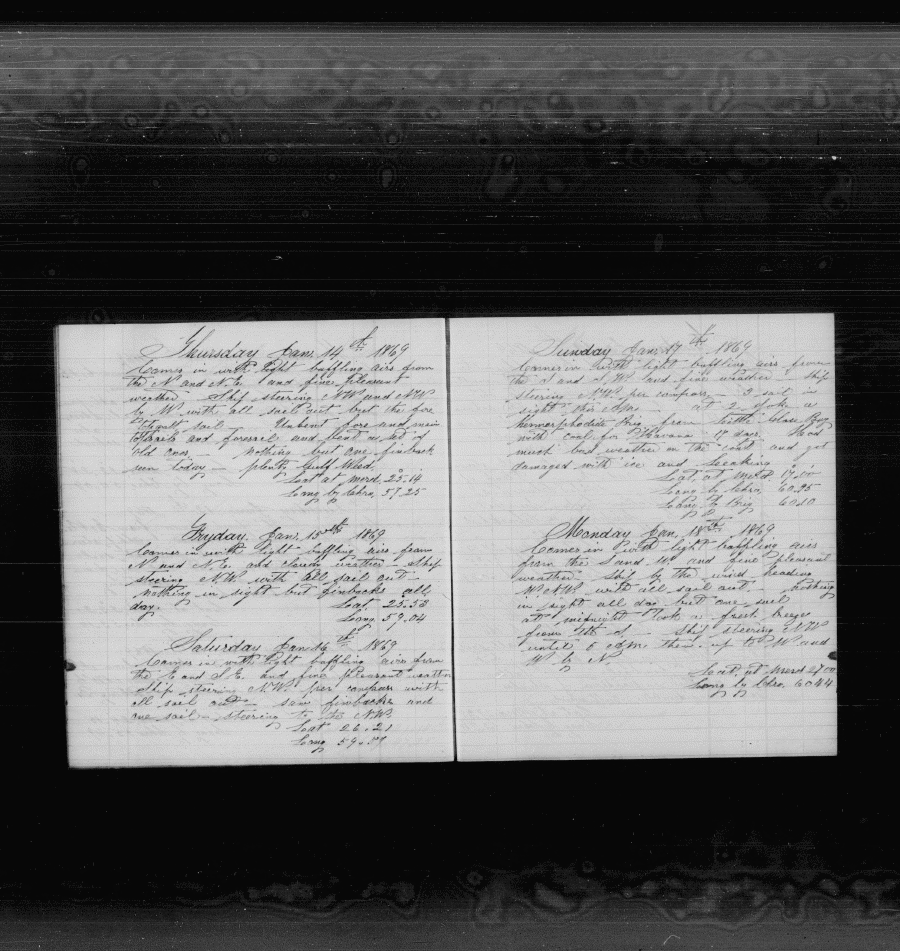 Thursday Jan, 14th 1869
Comes in with light baffling airs from
the N and N.E. and fine pleasant
weather Ship steering NW and NW
by W with all sail out but the fore
sail — Unbent fore and main
and foresail and bent a set of
old ones — nothing but one finback
seen today — plenty Gulf Weed.
Lat at Merd. 25.14
Long by Chro. 57.25
Fryday, Jan, 15th 1869
Comes in with light baffling airs from
N and N.E. and clear weather Ship
steering N.W. with all sail out —
nothing in sight but finbacks all
day. Lat 25.58
Long 59.04
Saturday Jan 16th 1869
Comes in with light baffling airs from
the E and S.E. and fine pleasant weather
Ship steering N.W. per compass with
all sail out — saw finbacks and
one sail — steering to the N.W.
Lat 26.21
Long 59.
Sunday Jan, 17th 1869
Comes in with light baffling airs from
the S and S.W. and fine weather — Ship
steering N.W. per compass — 3 sail in
sight this A.m. — at 2 spoke a
hermorphodite Brig from Little Glace Bay
with coal for Havana 17 days Had
much bad weather on the coast and got
damaged with ice and leaking
Lat, at Merd
Long by Chro, 60.25
Long by Brig 60.10
Monday Jan, 18th 1869
Comes in with light baffling airs
from the S and W and fine pleasant
weather Ship by the wind heading
W.N.W. with all sail out — nothing
in sight all day but one sail
at midnight took a fresh breeze
from Ship steering NW
until 6 A.m. then up to W and
W by N
Lat, at Merd 27.00
Long by Chro, 60.44